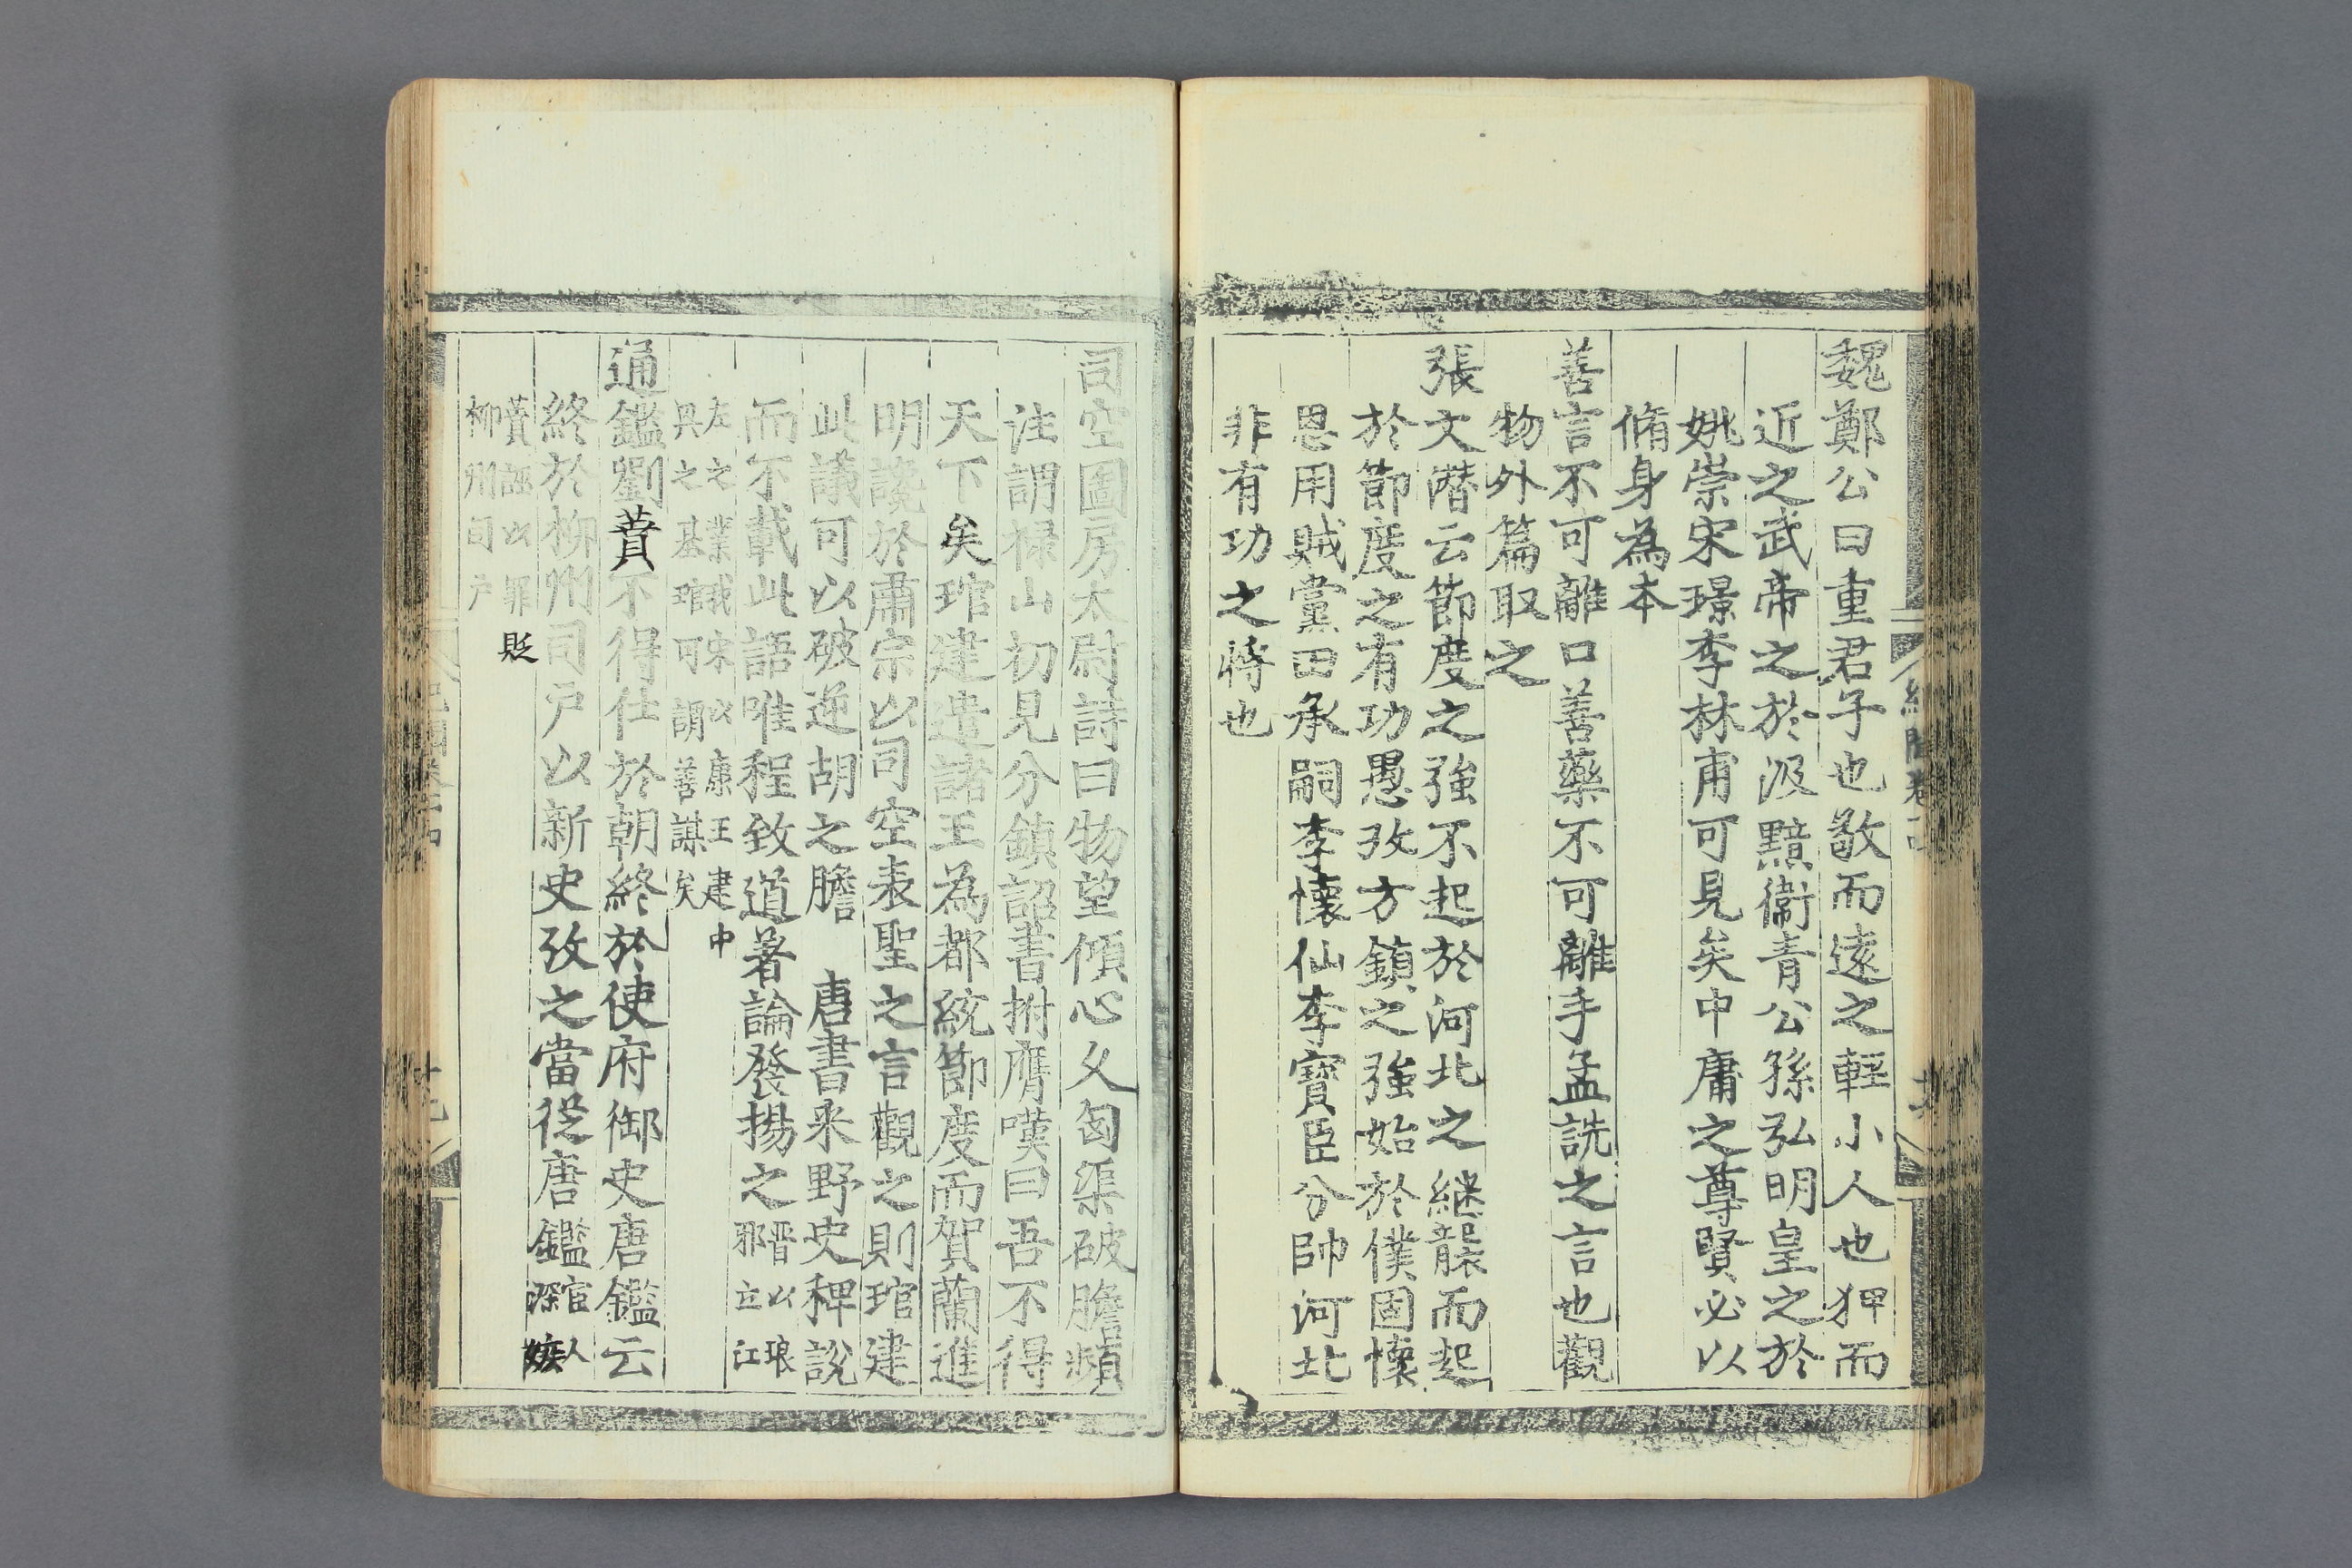 魏鄭公曰重君子也敬而遠之輕小人也狎而
近之武帝之於汲黯衞青公孫弘明皇之於
姚崇宋璟李林甫可見矣中庸之尊賢必以
脩身為本
善言不可離口善藥不可離手孟詵之言也觀
物外篇取之
張文潛云節度之強不起於河北之継襲而起
於節度之有功愚攷方鎮之強始於僕固懷
恩用賊黨田承嗣李懷仙李寶臣分帥河北
非有功之將也
司空圖房太尉詩曰物望傾心乆匈渠破膽頻
注謂禄山初見分鎮詔書拊膺嘆曰吾不得
天下矣琯建遣諸王為都統節度而賀蘭進
明讒於肅宗以司空表聖之言觀之則琯建
此議可以破逆胡之膽 唐書采野史稗說
而不載此語唯程致道著論發揚之
晉以琅
邪立江
左之業我宋以康王建中
興之基琯可謂善謀矣
通鑑劉蕡不得仕於朝終於使府御史唐鑑云
終於柳州司戶以新史攷之當從唐鑑
宦人
深嫉
蕡誣以罪貶
柳州司戶